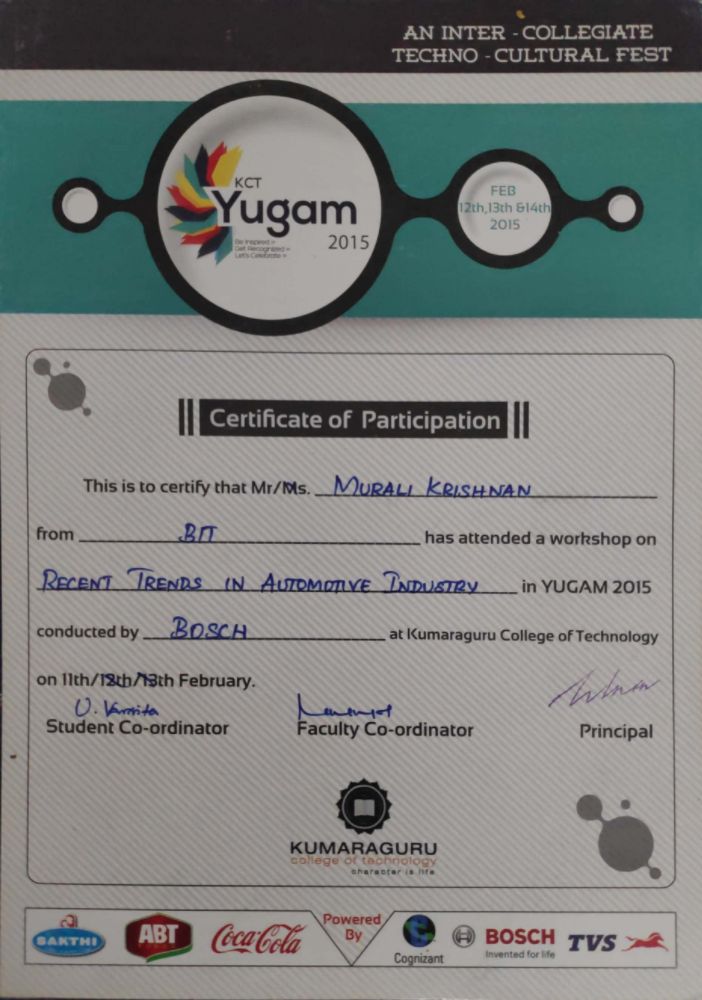 AN INTER - COLLEGIATE
TECHNO - CULTURAL FEST
KCT
Yugam
2015
Be Inspired >
Get Recognized >
Let's Celebrate >
FEB
12th,13th &14th
2015
Certificate of Participation
This is to certify that Mr/Ms. MURALI KRISHNAN
from BIT has attended a workshop on
RECENT TRENDS IN AUTOMOTIVE INDUSTRY in YUGAM 2015
conducted by BOSCH at Kumaraguru College of Technology
on 11th/12th/13th February.
Student Co-ordinator Faculty Co-ordinator Principal
KUMARAGURU
college of technology
character is life
SAKTHI ABT Coca-Cola Powered By Cognizant BOSCH TVS
Invented for life